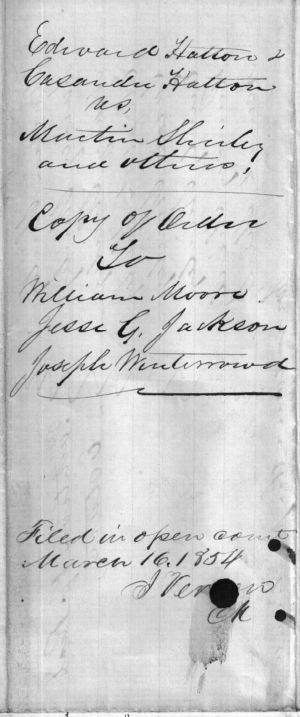 Edward Hatton &
Casandra Hatton
vs,
Martin Shirley
and others,
Copy of Order
To
William Moore
Jesse G. Jackson
Joseph Winterrowd
Filed in open court
March 16. 1854
J Vernon
Clk